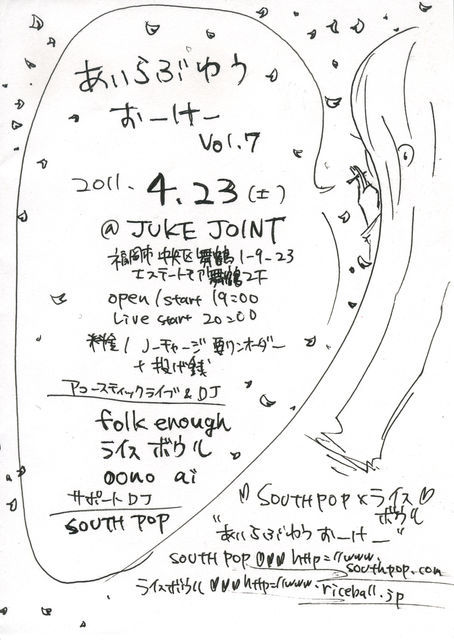 あいらぶゆう
おーけー
Vol.7
2011. 4.23(土)
@ JUKE JOINT
福岡市中央区舞鶴1-9-23
エステートモア舞鶴2F
open / start 19:00
Live start 20:00
料金 / ノーチャージ 要ワンオーダー
+ 投げ銭
アコースティックライブ & DJ
folk enough
ライスボウル
oono ai
サポートDJ
SOUTH POP
♡ SOUTH POP × ライス ♡
ボウル
"あいらぶゆうおーけー"
SOUTH POP ♡♡♡ http://www.
southpop.com
ライスボウル ♡♡♡ http://www.
riceball.jp